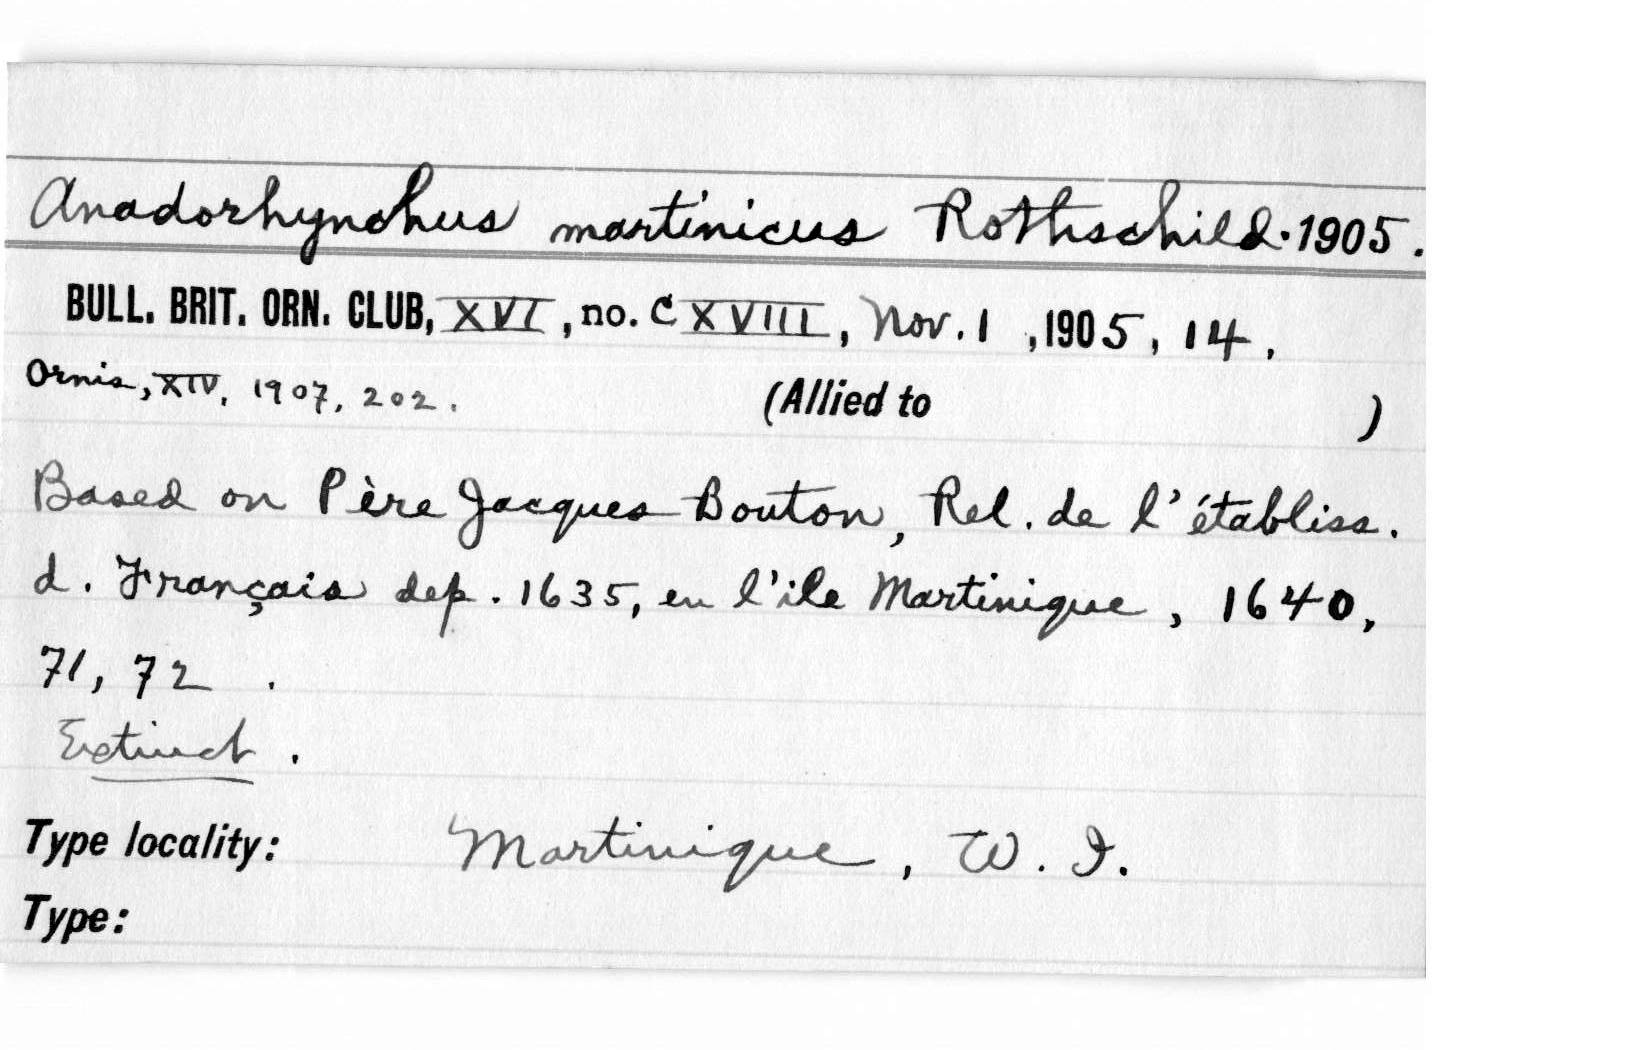 Anadorhynchus martinicus Rothschild. 1905.
BULL. BRIT. ORN. CLUB, XVI, no. CXVIII, Nov. 1, 1905, 14.
Ornis, XIV, 1907, 202. (Allied to )
Based on Père Jacques Bouton, Rel. de l'établiss.
d. Français dep. 1635, en l'ile Martinique, 1640,
71, 72.
Extinct.
Type locality: Martinique, W. I.
Type: